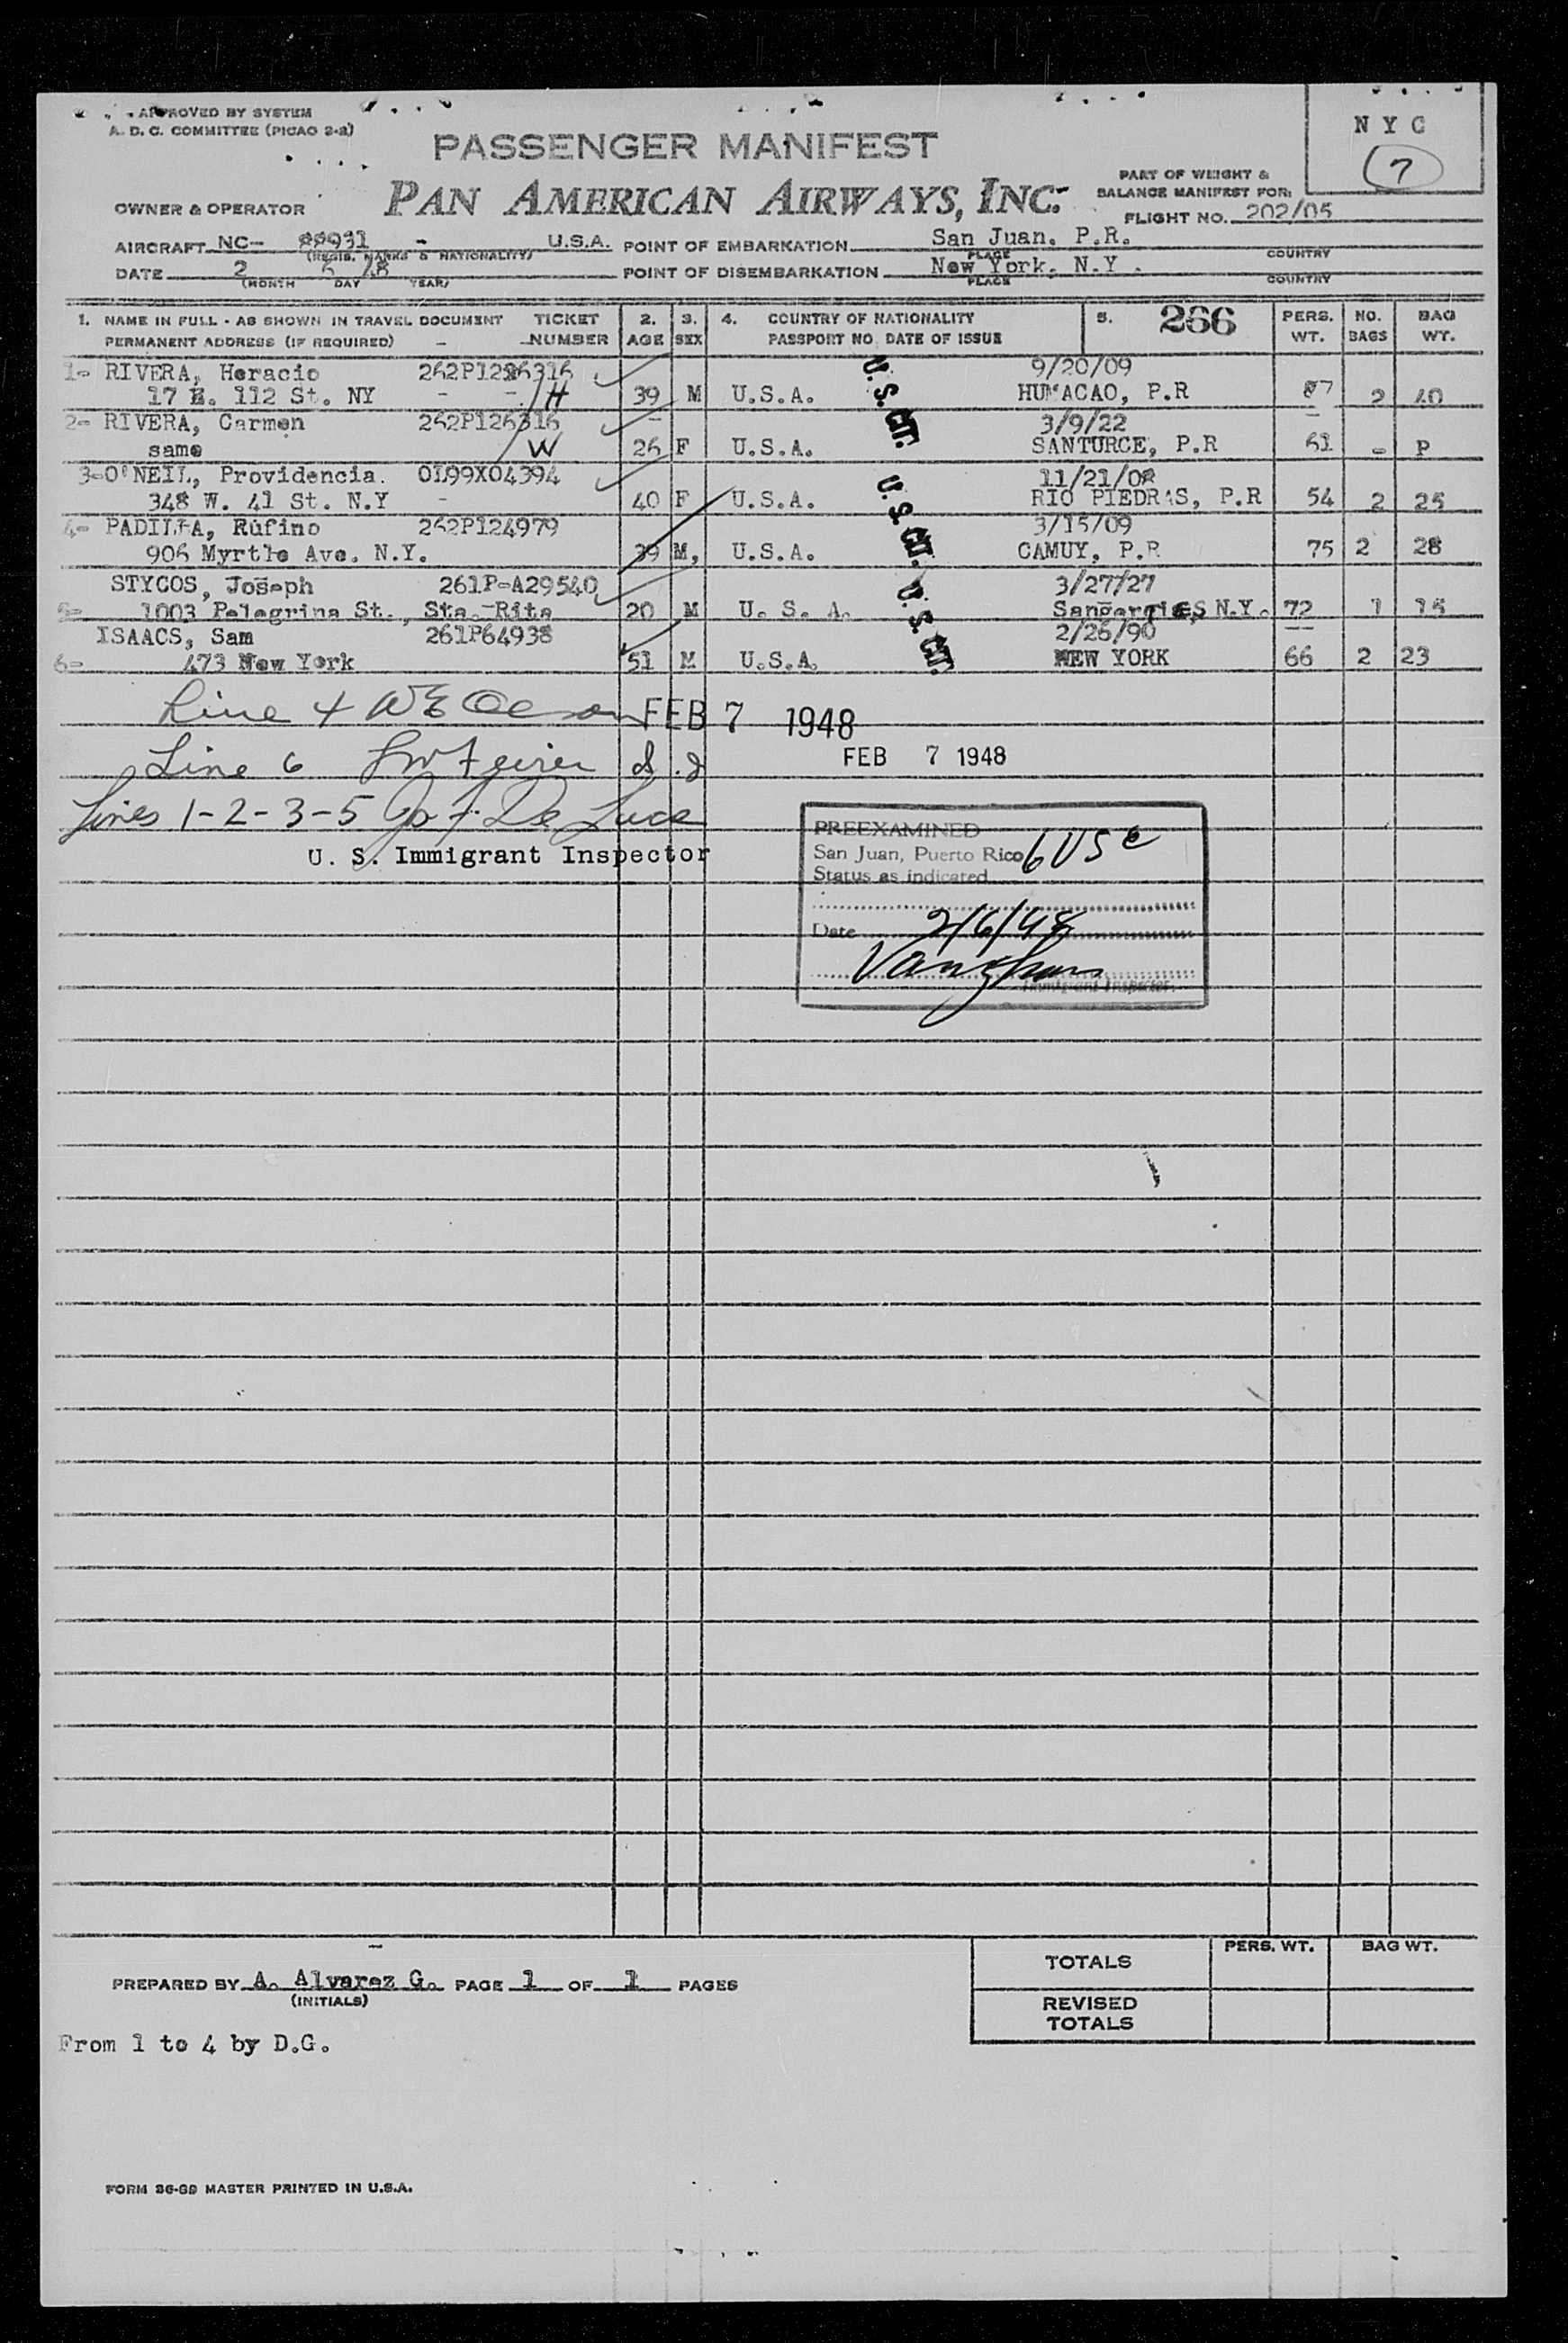 APPROVED BY SYSTEM
A. D. C. COMMITTEE (PICAO 2-2)
N Y C
7
PASSENGER MANIFEST
PAN AMERICAN AIRWAYS, INC.
PART OF WEIGHT &
BALANCE MANIFEST FOR:
FLIGHT NO. 202/05
OWNER & OPERATOR
AIRCRAFT NC- 88931 - U.S.A. POINT OF EMBARKATION San Juan. P.R.
(REGIS. MARKS & NATIONALITY) PLACE COUNTRY
DATE 2 6 48 POINT OF DISEMBARKATION New York, N.Y.
(MONTH DAY YEAR) PLACE COUNTRY
1. NAME IN FULL - AS SHOWN IN TRAVEL DOCUMENT TICKET 2. 3. 4. COUNTRY OF NATIONALITY 5. 266 PERS. NO. BAG
PERMANENT ADDRESS (IF REQUIRED) NUMBER AGE SEX PASSPORT NO. DATE OF ISSUE WT. BAGS WT.
1- RIVERA, Horacio 9/20/09
17 E. 112 St. NY H 39 M U.S.A. HUMACAO, P.R 87 2 40
2- RIVERA, Carmen 262P126316 3/9/22
same W 26 F U.S.A. SANTURCE, P.R 61 - P
3- O'NEIL, Providencia. 0199X04394 11/21/08
348 W. 41 St. N.Y 40 F U.S.A. RIO PIEDRAS, P.R 54 2 25
4- PADILLA, Rufino 262P124979 3/15/09
906 Myrtle Ave. N.Y. 39 M, U.S.A. CAMUY, P.R 75 2 28
STYCOS, Joseph 261P-A29540 3/27/27
5- 1003 Pelegrina St., Sta. Rita 20 M U. S. A. N.Y. 72 1 15
ISAACS, Sam 261P64938 2/26/90
6- 473 New York 51 M U.S.A. NEW YORK 66 2 23
U.S. CT.
U.S. CT.
U.S. CT.
Line 4 FEB 7 1948
Line 6 FEB 7 1948
Lines 1-2-3-5 Jos. F. De Luca
U. S. Immigrant Inspector
PREEXAMINED
San Juan, Puerto Rico 6 USC
Status as indicated
Date 2/6/48
Vaughan
Immigrant Inspector
PREPARED BY A. Alvarez G. PAGE 1 OF 1 PAGES
(INITIALS)
TOTALS PERS. WT. BAG WT.
REVISED
TOTALS
From 1 to 4 by D.G.
FORM 36-69 MASTER PRINTED IN U.S.A.